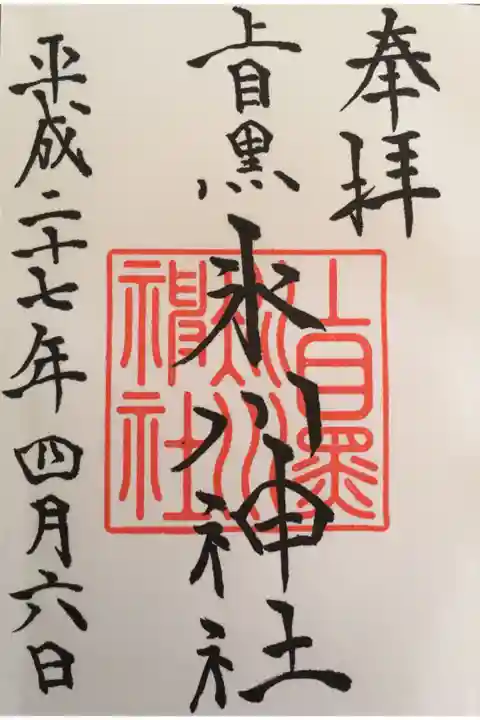 奉拝
上目黒氷川神社
上目黒
氷川
神社
平成二十七年四月六日